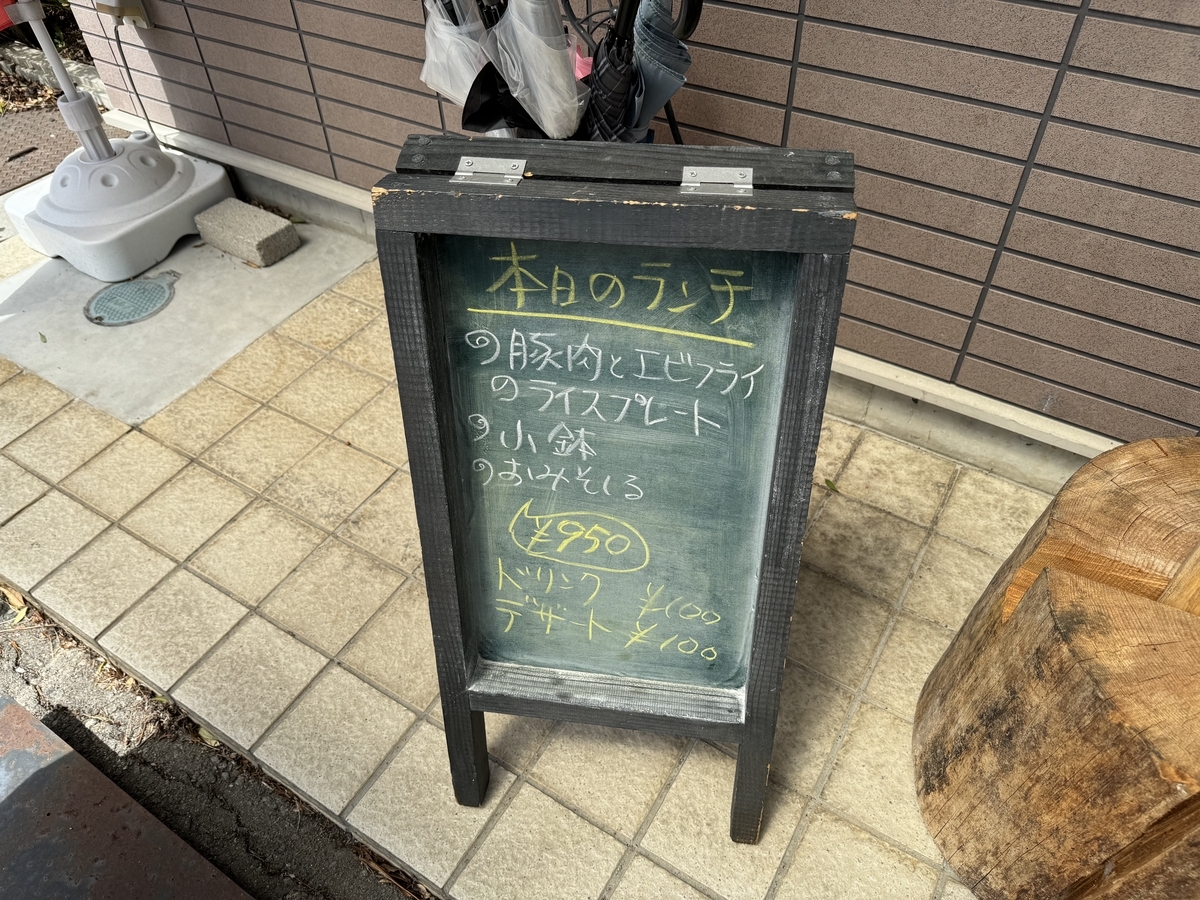 本日のランチ
豚肉とエビフライ
のライスプレート
小鉢
おみそしる
¥950
ドリンク ¥100
デザート ¥100